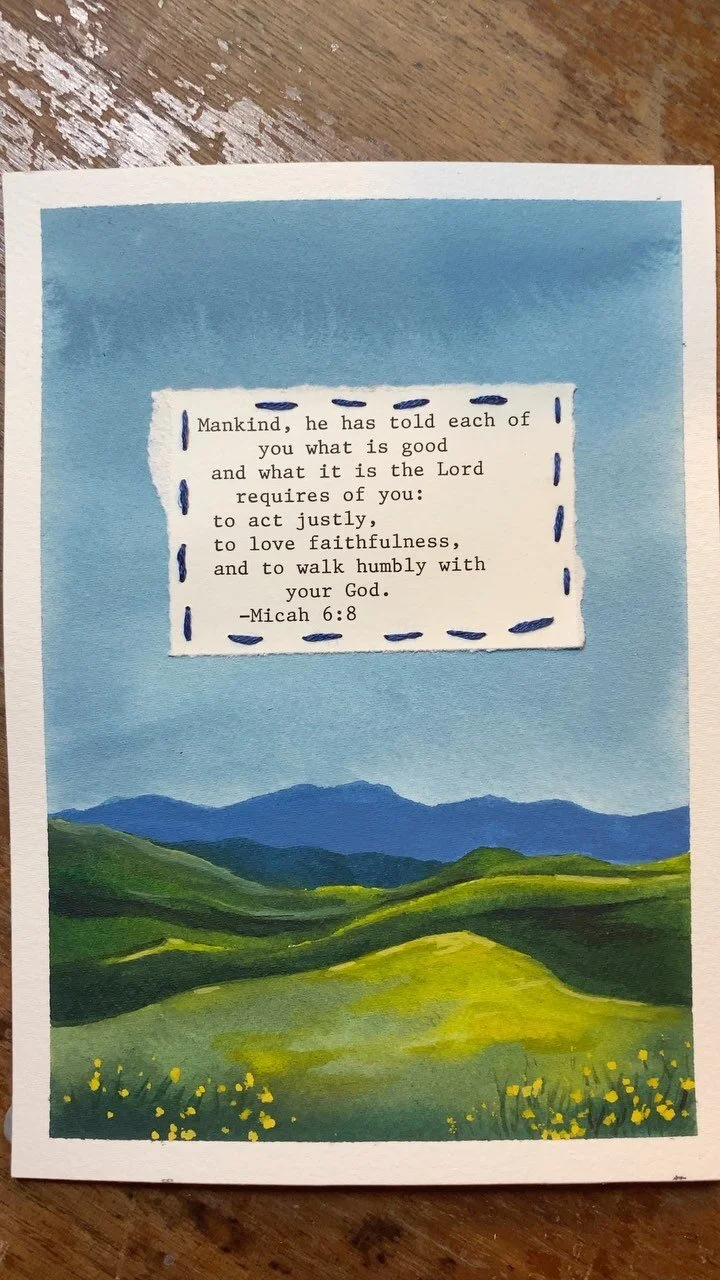 Mankind, he has told each of
you what is good
and what it is the Lord
requires of you:
to act justly,
to love faithfulness,
and to walk humbly with
your God.
-Micah 6:8